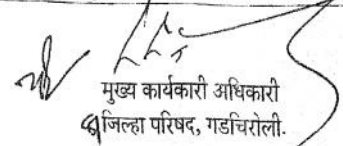 मुख्य कार्यकारी अधिकारी
जिल्हा परिषद, गडचिरोली.